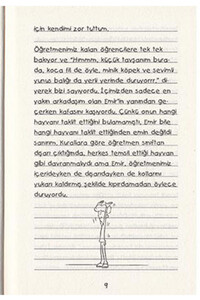 için kendimi zor tuttum.
Öğretmenimiz kalan öğrencilere tek tek
bakıyor ve "Hımmm, küçük tavşanım bura-
da, koca fil de öyle, minik köpek ve sevimli
yunus balığı da yerli yerinde duruyorrr." di-
yerek bizi sayıyordu. İçimizden sadece en
yakın arkadaşım olan Emir'in yanından ge-
çerken kafasını kaşıyordu. Çünkü onun hangi
hayvanı taklit ettiğini bulamamıştı, Emir bile
hangi hayvanı taklit ettiğinden emin değildi
sanırım. Kurallara göre öğretmen sınıftan
dışarı çıktığında, herkes temsil ettiği hayvan
gibi davranmalıydı ama Emir, öğretmenimiz
içerideyken de dışarıdayken de kollarını
yukarı kaldırmış şekilde kıpırdamadan öylece
duruyordu.
9